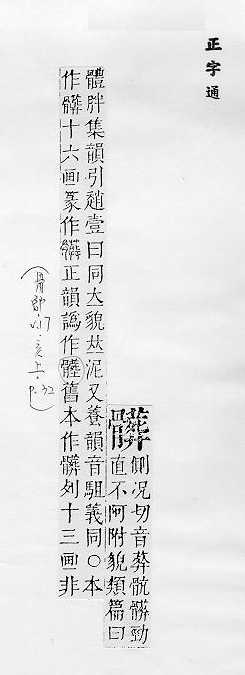 正字通
髒
側况切音葬骯髒勁
直不阿附貌類篇曰
體胖集韻引趙壹曰同 貌 泥又養韻音駔義同○本
作髒十六画篆作 正韻譌作 舊本作髒列十三画非
(骨部 v.17 亥上 p.32)